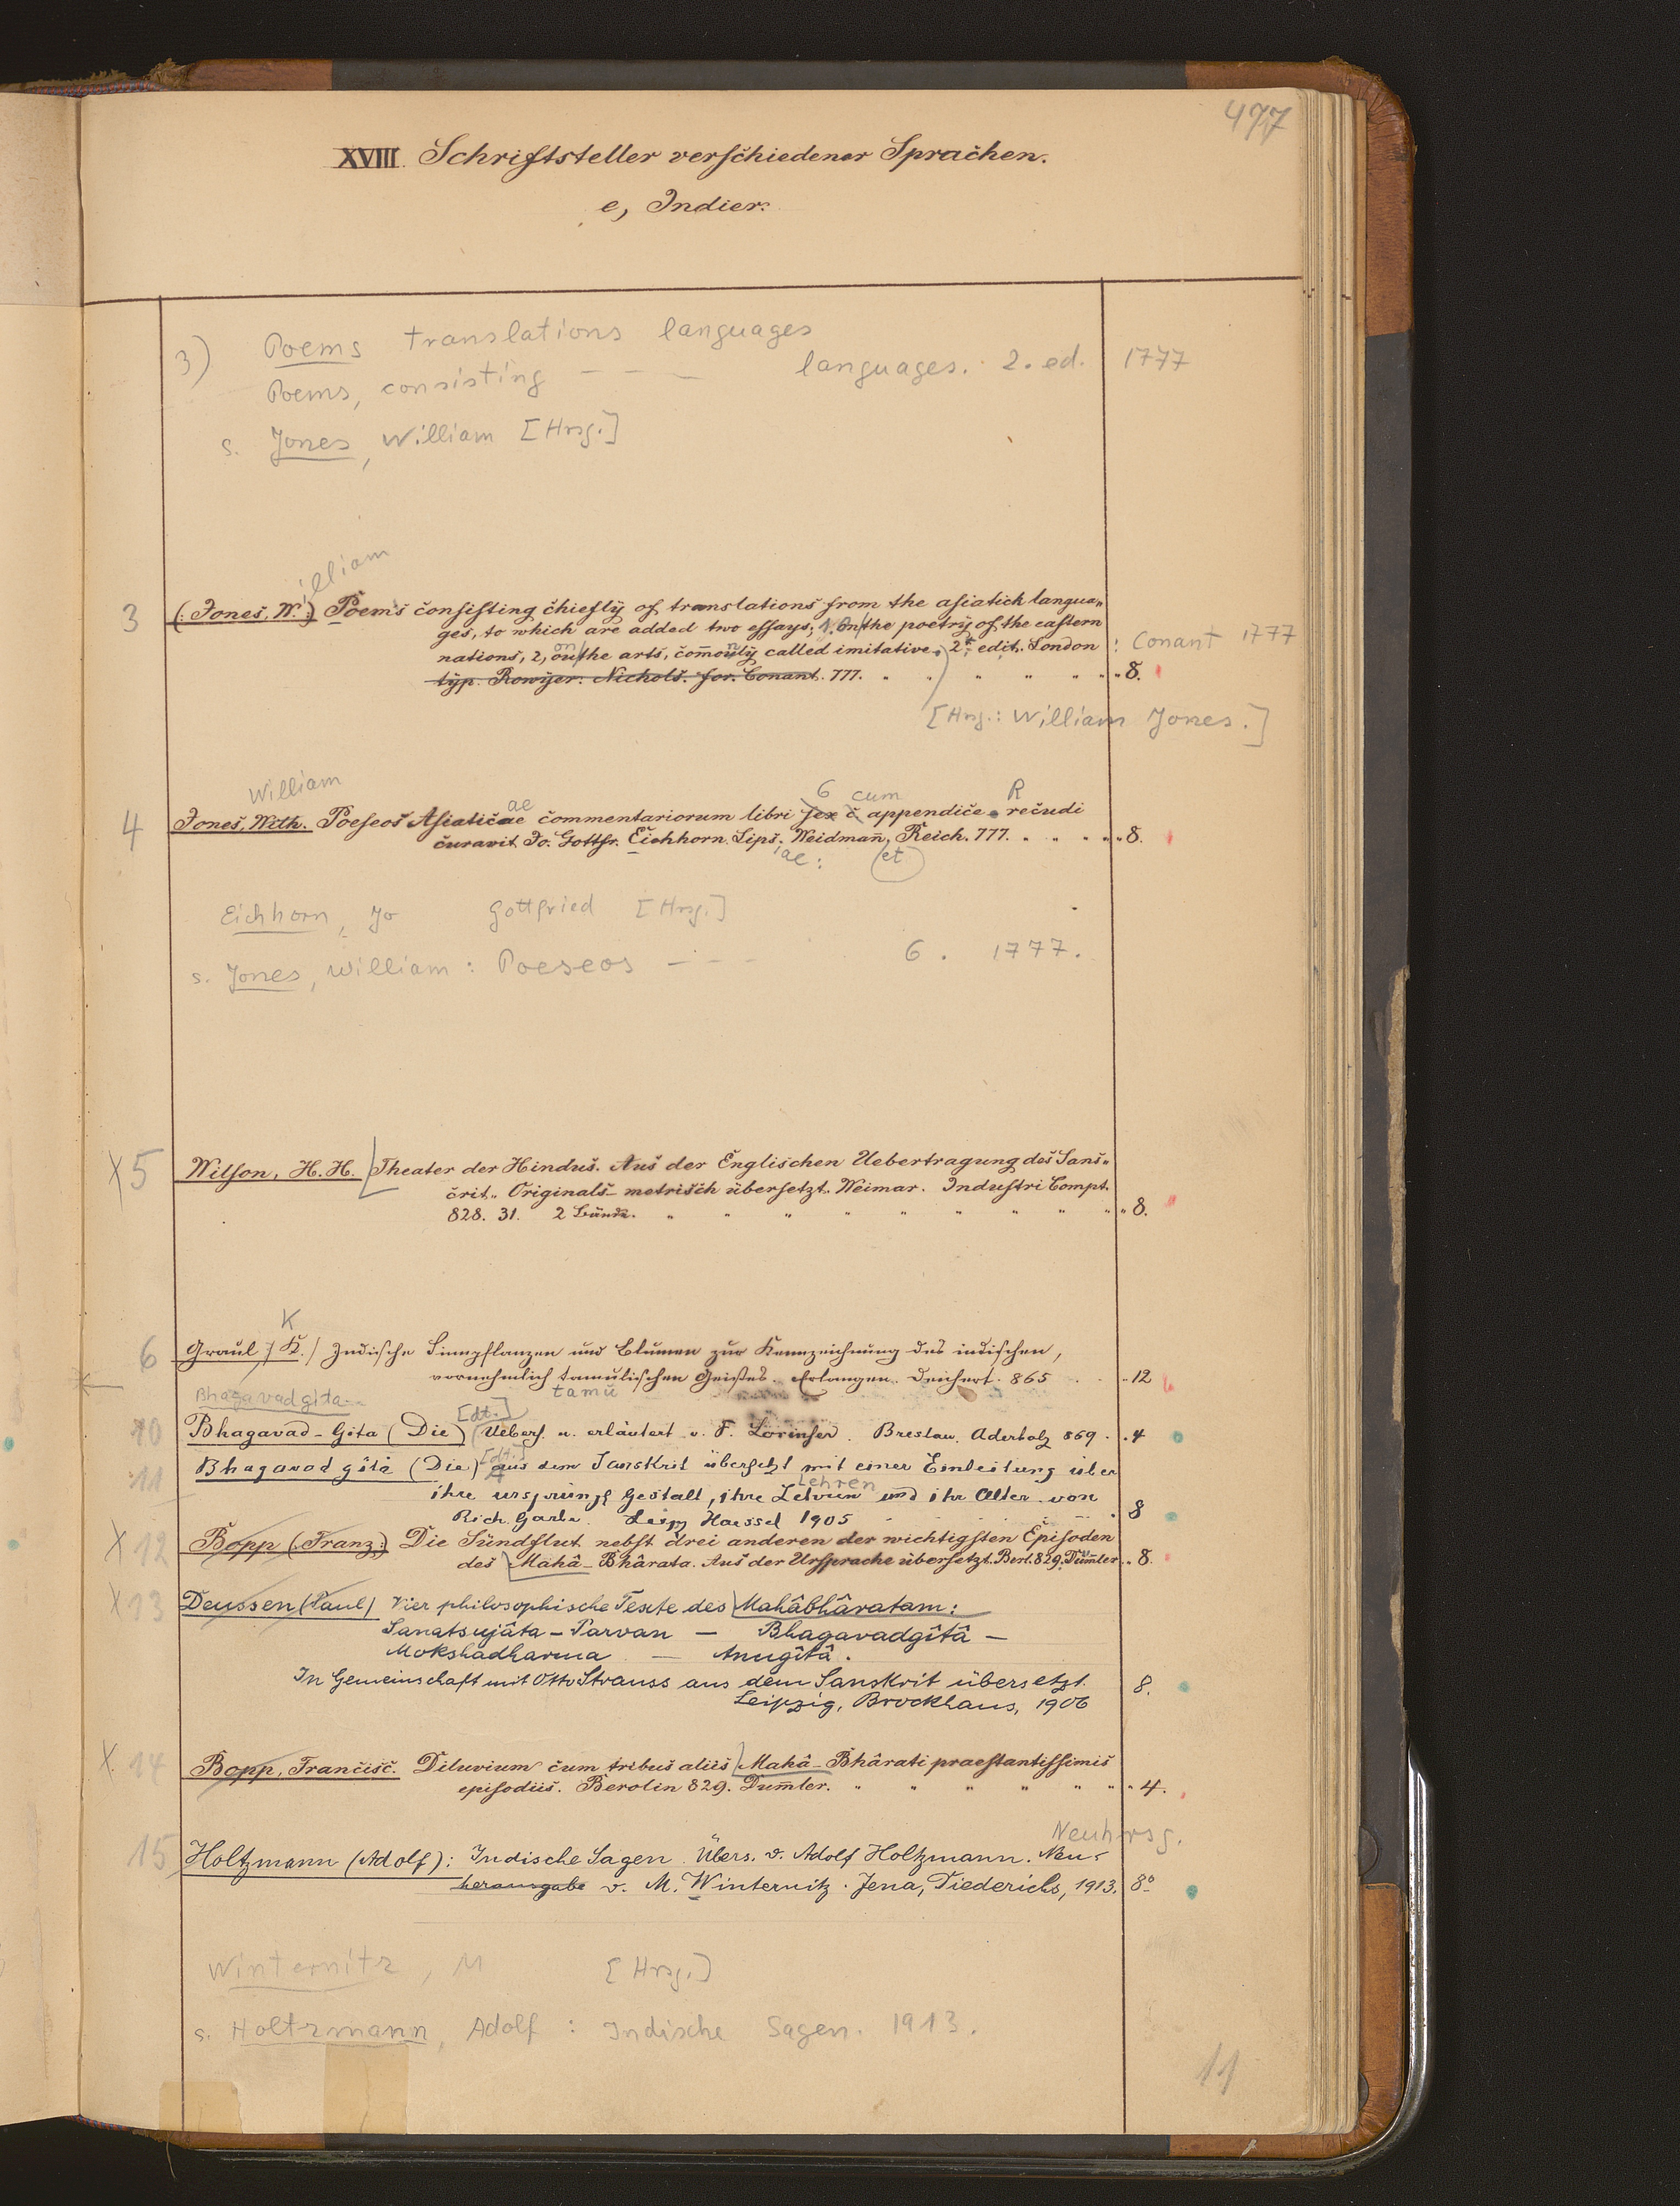 477
XVIII. Schriftsteller verschiedener Sprachen.
e, Indier.
3) Poems translations languages
Poems, consisting – – – languages. 2. ed. 1777
s. Jones, William [Hrsg.]
illiam
3 (Jones, W.) Poems consisting chiefly of translations from the asiatick langua„
ges, to which are added two essays, 1, on the poetry of the eastern
nations, 2, on the arts, com̄only called imitative. 2t edit. London : Conant 1777
typ. Bowyer. Nichols. for. Conant. 777. 8.
[Hrsg.: William Jones.]
William ae 6 cum R
4 Jones, With. Poeseos Asiaticae commentariorum libri sex c appendice recudi
curavit Jo. Gottfr. Eichhorn Lips. Weidman̄, Reich. 777. 8.
ae: et
Eichhorn, Jo Gottfried [Hrsg.]
s. Jones, William: Poeseos – – – 6. 1777.
X 5 Wilson, H. H. Theater der Hindus. Aus der Englischen Uebertragung des Sans„
crit„ Originals metrisch übersetzt. Weimar. Industri Compt.
828. 31. 2 Bände. 8.
K
6 Graul / K. / Indische Sinnpflanzen und Blumen zur Kennzeichnung des indischen,
vornehmlich tamulischen Geistes. Erlangen. Deichert. 865 12
tamu
Bhagavadgita
[dt.]
10 Bhagavad-Gita (Die) Uebers. u. erläutert v. F. Lorinser. Breslau. Aderholz 869. 4
[dt.]
11 Bhagavad gîtâ (Die) aus dem Sanskrit übersetzt mit einer Einleitung über
Lehren
ihre ursprüngl Gestalt, ihre Lehren und ihr Alter von
Rich. Garbe. Leipz Haessel 1905 8
X 12 Bopp (Franz:) Die Sündflut nebst drei anderen der wichtigsten Episoden
des Mahâ-Bhârata. Aus der Ursprache übersetzt. Berl. 829. Düm̄ler 8.
X 13 Deussen (Paul) Vier philosophische Texte des Mahâbhâratam:
Sanatsujâta-Parvan – Bhagavadgîtâ –
Mokshadharma – Anugîtâ.
In Gemeinschaft mit Otto Strauss aus dem Sanskrit übersetzt. 8.
Leipzig, Brockhaus, 1906
X. 14 Bopp, Francisc. Diluvium cum tribus aliis Mahâ-Bhârati praestantissimis
episodiis. Berolin 829. Dum̄ler. 4.
Neuhrsg.
15 Holtzmann (Adolf): Indische Sagen. Übers. v. Adolf Holtzmann. Neu-
herausgabe v. M. Winternitz. Jena, Diederichs, 1913. 8o
Winternitz, M [Hrsg.]
s. Holtzmann, Adolf: Indische Sagen. 1913.
11